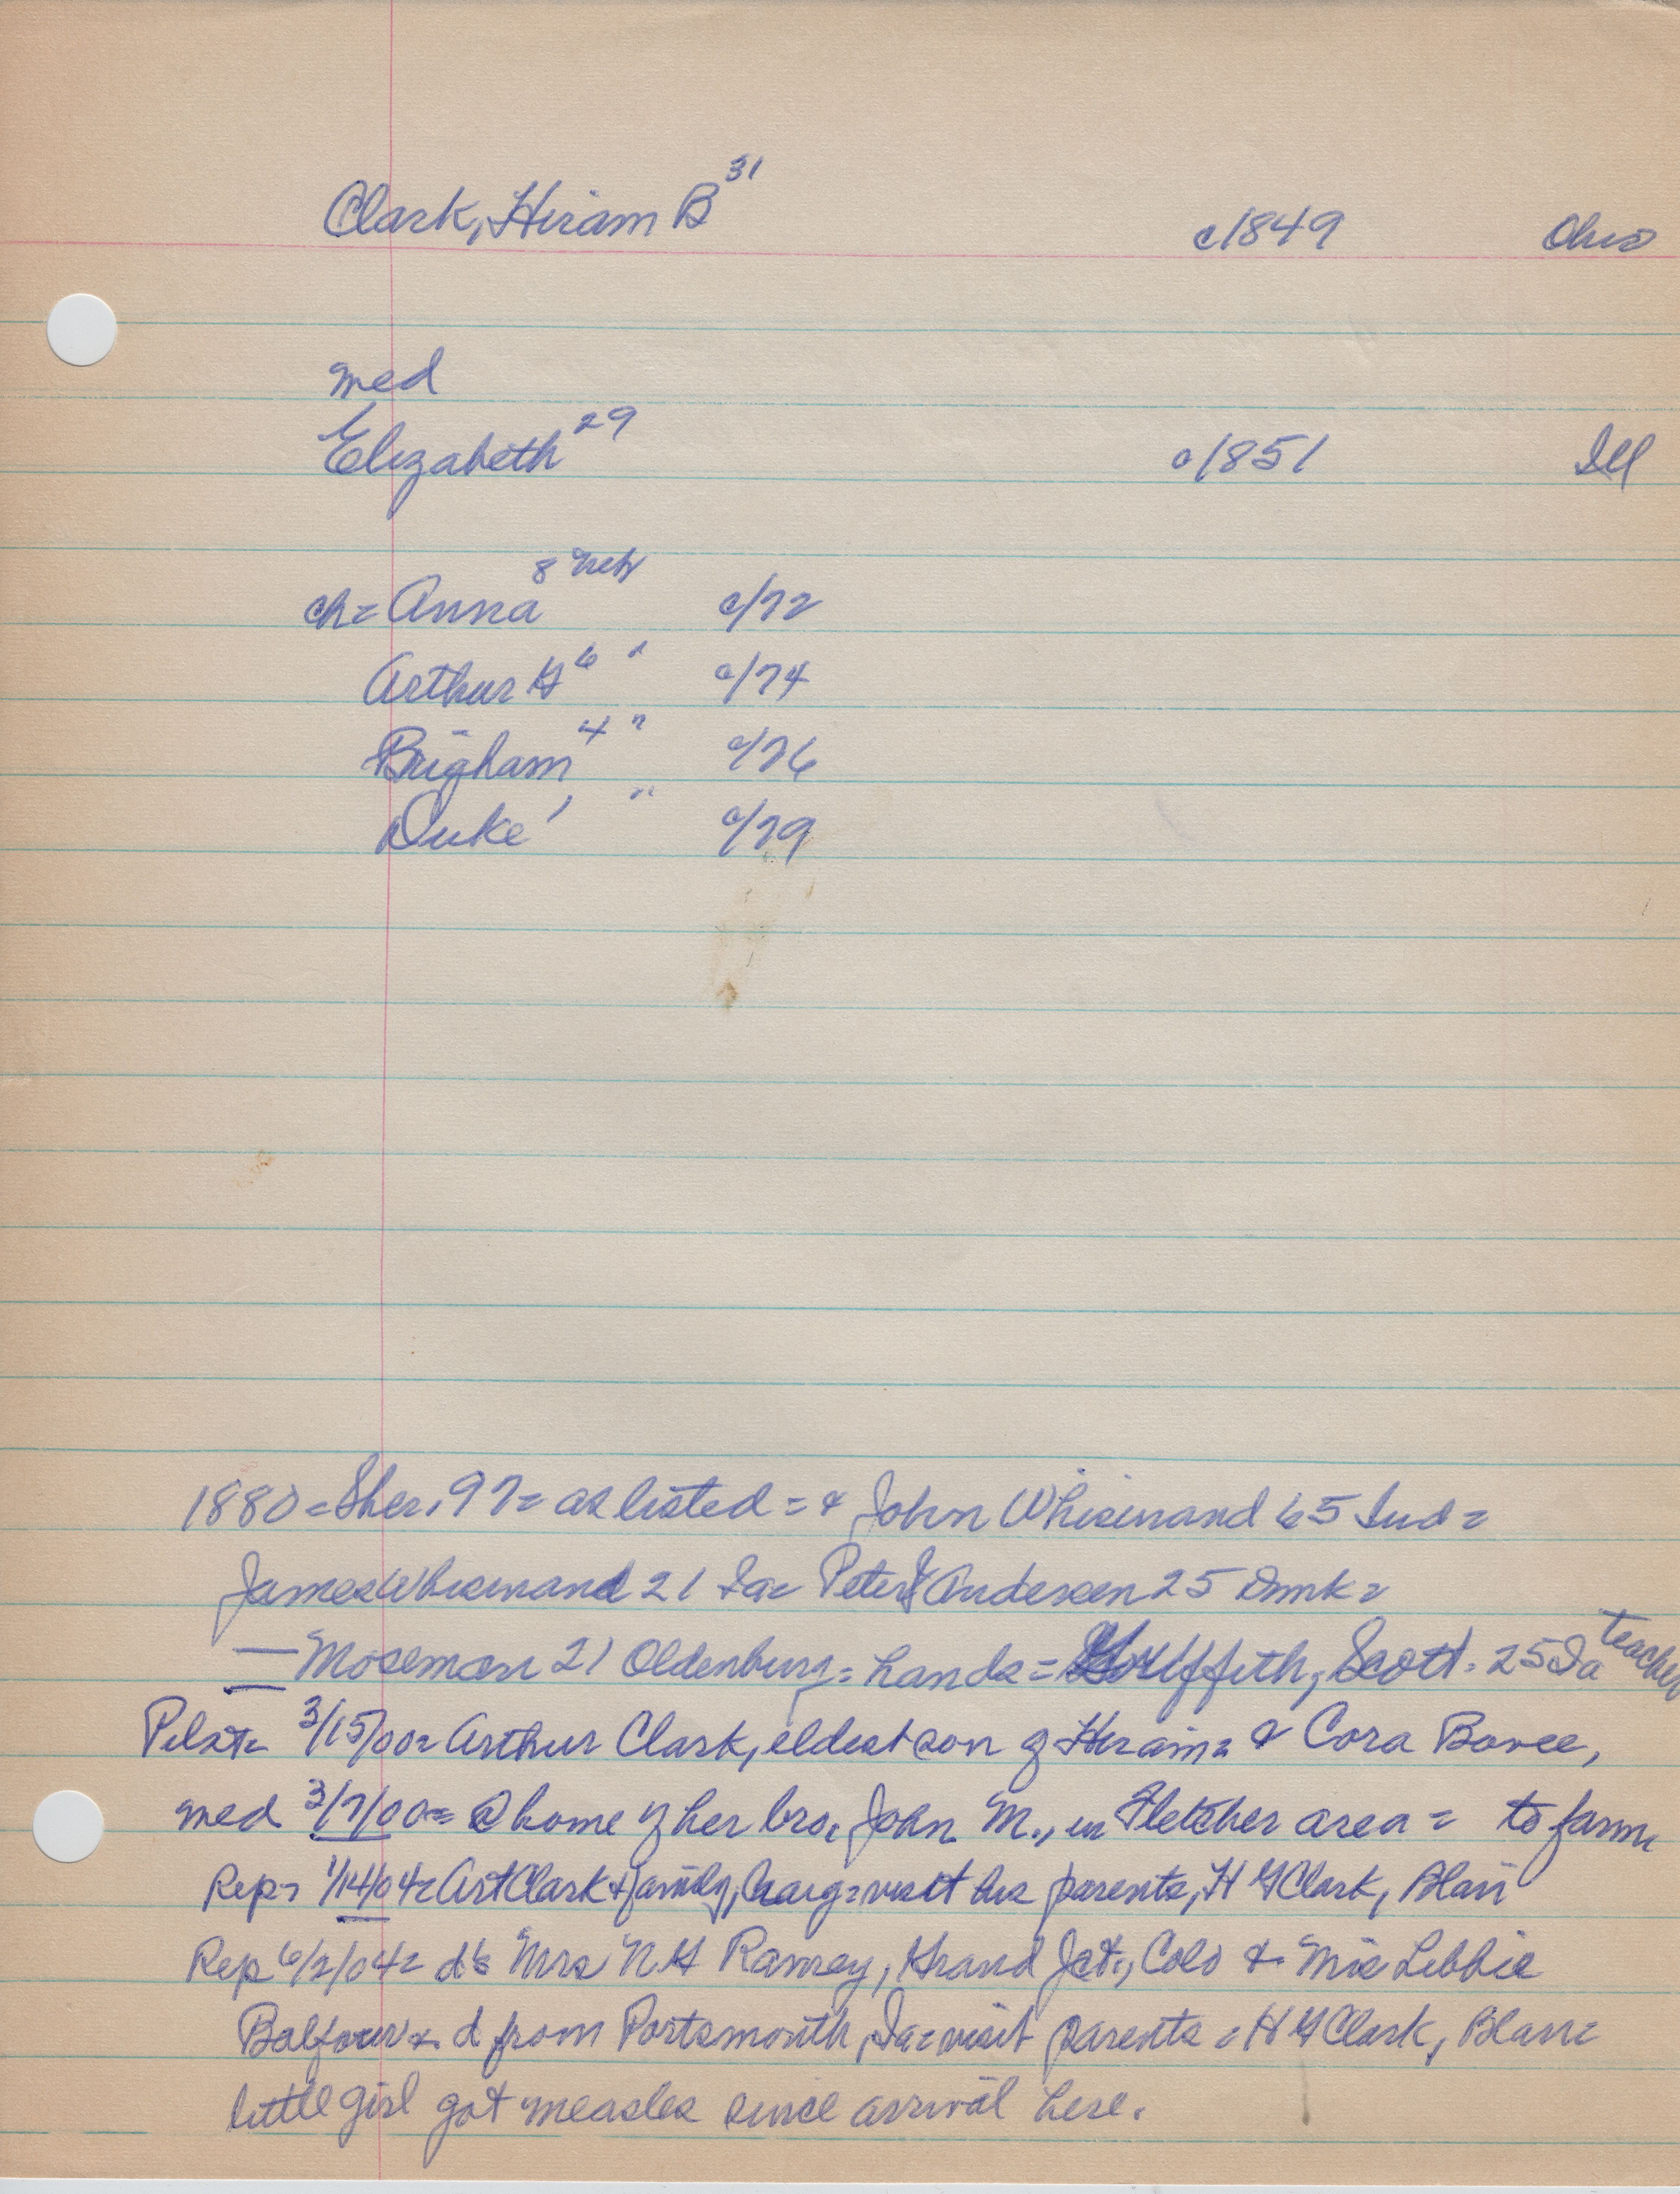 Clark, Hiram B 31 c1849 Ohio
med
Elizabeth 29 c1851 Ill
ch= Anna 8 Neb c/72
Arthur H 6 " c/74
Brigham 4 " c/76
Duke 1 " c/79
1880= Sher. 97= as listed = & John Whisinand 65 Ind=
James Whisinand 21 Ia= Peter Andersen 25 Dmk=
— Moseman 21 Oldenburg= hands= Griffith, Scott. 25 Ia teacher
Pilot= 3/15/00= Arthur Clark, eldest son of Hiram= & Cora Bovee,
med 3/7/00= @ home of her bro. John M., in Fletcher area = to farm
Rep= 1/14/04= Art Clark & family, Craig= visit his parents, H G Clark, Blair
Rep 6/2/04= d's Mrs N. H Ramsey, Grand Jct., Colo & Mrs Libbie
Balfour & d from Portsmouth, Ia= visit parents = H G Clark, Blair=
little girl got measles since arrival here.